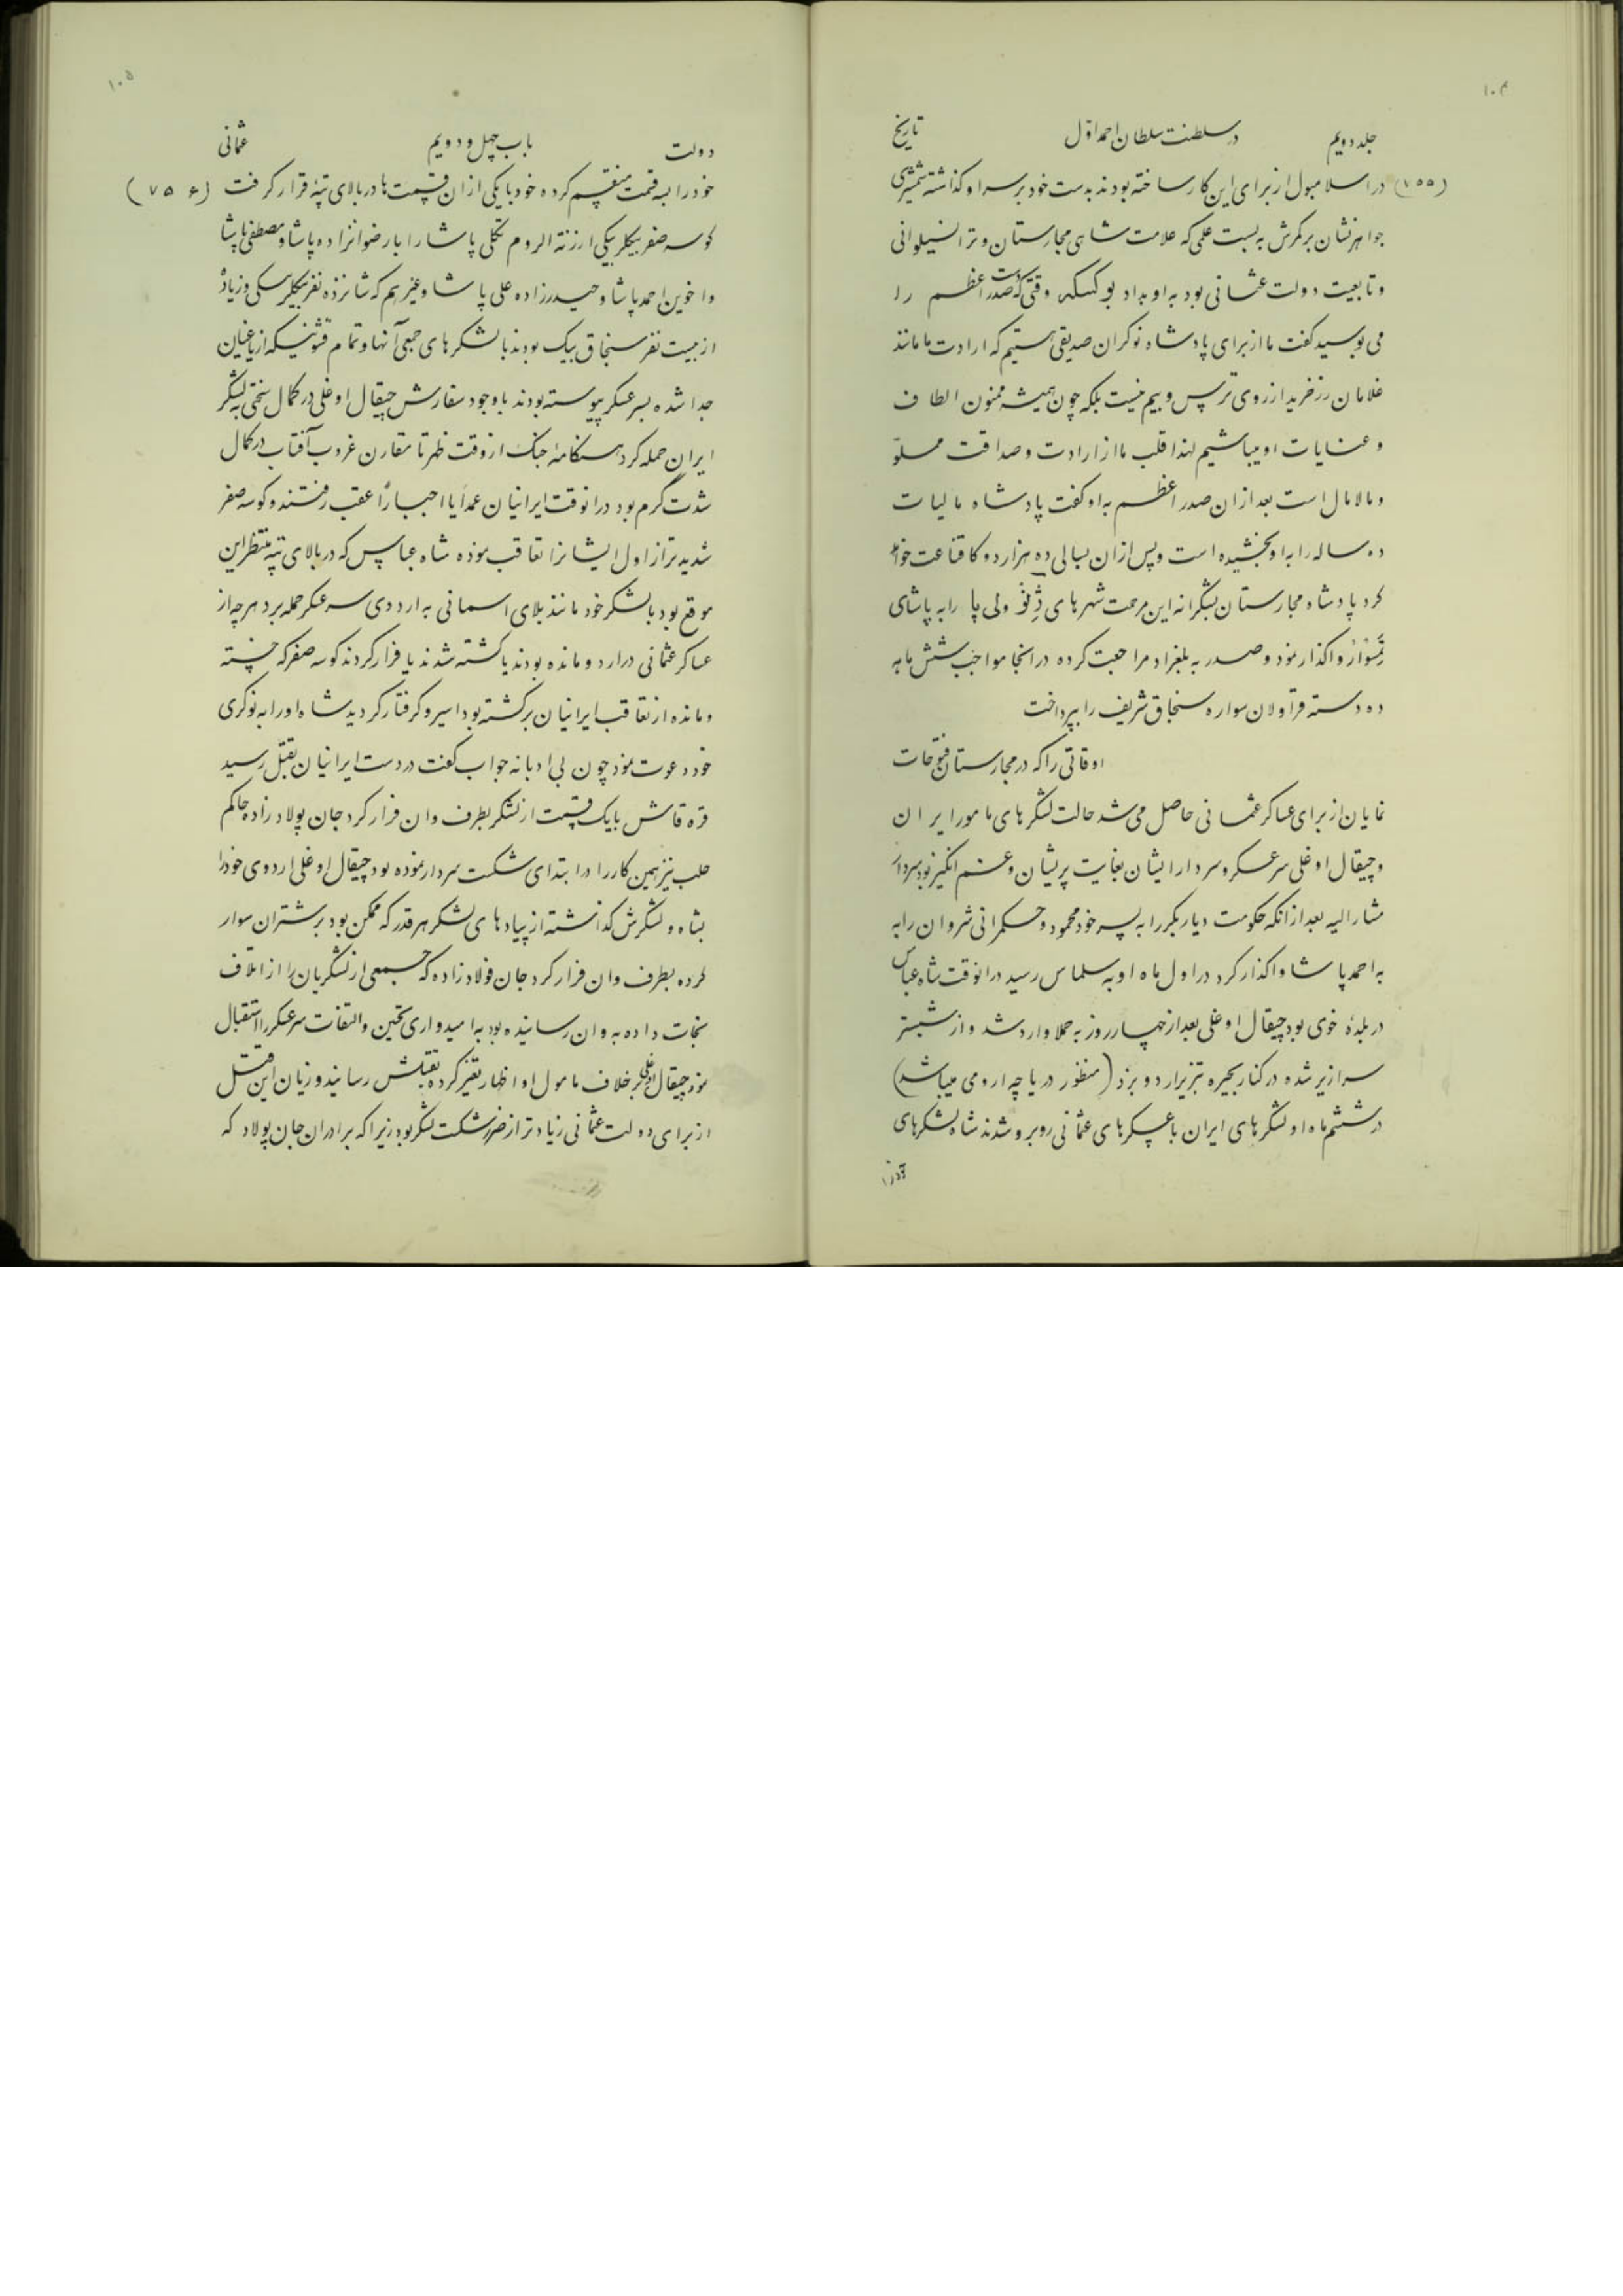 ۱۰۴
جلد دویم در سلطنت سلطان احمد اوّل تاریخ
(۷۵۵) در اسلامبول از برای این کار ساخته بودند بدست خود بر سر او گذاشته شمشیری
جواهرنشان بر کمرش بست علمی که علامت شاهی مجارستان و ترانسیلوانی
و تابعیت دولت عثمانی بود به او بداد بوکسکه وقتی که دست صدر اعظم را
می بوسید گفت ما از برای پادشاه نوکران صدیقی هستیم که ارادت ما مانند
غلامان زرخرید از روی ترس و بیم نیست بلکه چون همیشه ممنون الطاف
و عنایات او میباشیم لهذا قلب ما از ارادت و صداقت مملوّ
و مالامال است بعد از ان صدر اعظم به او گفت پادشاه مالیات
ده ساله را به او بخشیده است و پس از ان بسالی ده هزار دوکا قناعت خواهد
کرد پادشاه مجارستان بشکرانه این مرحمت شهرهای و لی پا را به پاشای
واگذار نمود و صدر به بلغراد مراجعت کرده در انجا مواجب شش ماهه
ده دسته قراولان سواره سنجاق شریف را بپرداخت
اوقاتی را که در مجارستان فتوحات
نمایان از برای عساکر عثمانی حاصل می شد حالت لشکرهای مامور ایران
و چیقال اوغلی سرعسکر و سردار ایشان بغایت پریشان و غم انگیز بود سردار
مشارالیه بعد از انکه حکومت دیاربکر را به پسر خود محمود و حکمرانی شروان را به
به احمد پاشا واگذار کرد در اول ماه او به سلماس رسید در انوقت شاه عباس
در بلدهٔ خوی بود چیقال اوغلی بعد از چهار روز به حملا وارد شد و از شبستر
سرازیر شده در کنار بحیره تبریز اردو بزد (منظور دریاچه ارومی میباشد)
در ششم ماه او لشکرهای ایران با عسکرهای عثمانی روبرو شدند شاه لشکرهای
۱۰۵
دولت باب چهل و دویم عثمانی
خود را به قسمت منقسم کرده خود با یکی از ان قسمت ها در بالای تپهٔ قرار گرفت (۷۵۶)
کوسه صفر بیکلربیکی ارزنة الروم تکلی پاشا را با رضوانزاده پاشا و مصطفی پاشا
و اخوین احمد پاشا و حیدرزاده علی پاشا و غیرهم که شانزده نفر بیکلربیکی و زیاده
از بیست نفر سنجاق بیک بودند با لشکرهای جمعی آنها و تمام قشونیکه از یاغیان
جدا شده بسر عسکر پیوسته بودند با وجود سفارش چیقال اوغلی در کمال سختی به لشکر
ایران حمله کرد هنگامه جنک از وقت ظهر تا مقارن غروب آفتاب در کمال
شدت گرم بود در انوقت ایرانیان عمداً یا اجباراً عقب رفتند و کوسه صفر
شدیدتر از اول ایشانرا تعاقب نموده شاه عباس که در بالای تپه منتظر این
موقع بود با لشکر خود مانند بلای اسمانی به اردوی سرعسکر حمله برد هر چه از
عساکر عثمانی در اردو مانده بودند یا کشته شدند یا فرار کردند کوسه صفر که خسته
و مانده از تعاقب ایرانیان برگشته بود اسیر و گرفتار گردید شاه او را به نوکری
خود دعوت نمود چون بی ادبانه جواب گفت در دست ایرانیان بقتل رسید
قره قاش با یک قسمت از لشکر بطرف وان فرار کرد جان پولاد زاده حاکم
حلب نیز همین کار را در ابتدای شکست سردار نموده بود چیقال اوغلی اردوی خود را
بشاه و لشکرش گذاشته از پیادهای لشکر هر قدر که ممکن بود بر شتران سوار
کرده بطرف وان فرار کرد جان فولاد زاده که جمعی از لشکریان را از اتلاف
نجات داده به وان رسانیده بود به امیدواری تحسین و التفات سرعسکر را استقبال
نمود چیقال اوغلی بر خلاف مامول او اظهار تغیر کرده بقتلش رسانید و زیان این قتل
از برای دولت عثمانی زیادتر از ضرر شکست لشکر بود زیرا که برادران جان پولاد که